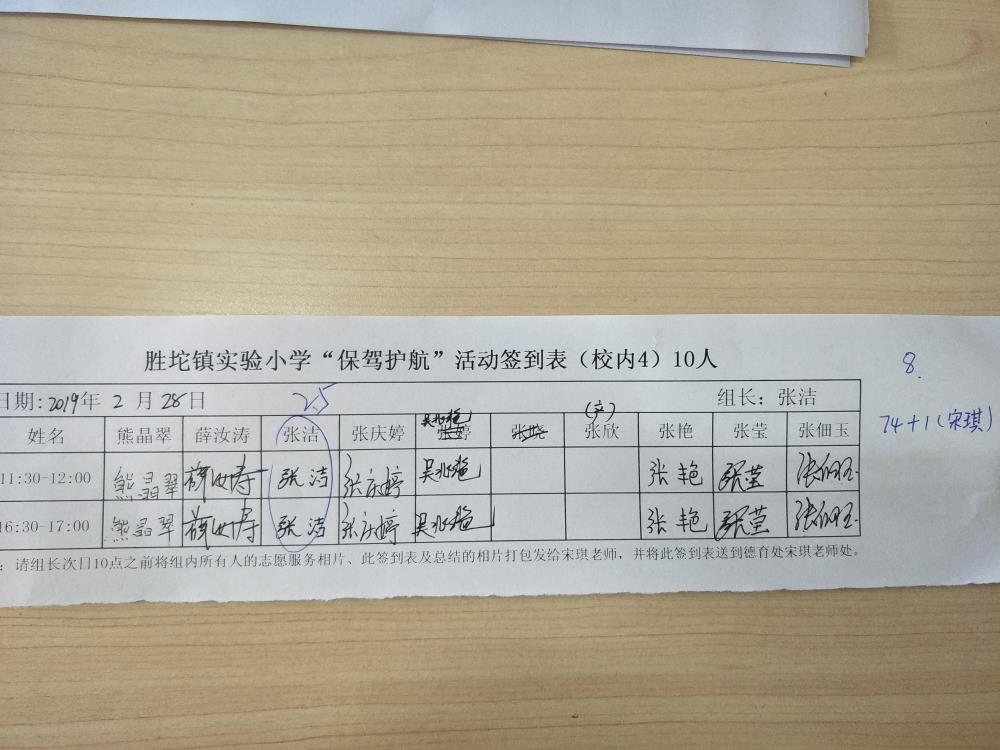 胜坨镇实验小学“保驾护航”活动签到表（校内4）10人
8.
日期:2019年 2 月 28日 2.5 组长：张洁
74+1(宋琪)
(产)
姓名 熊晶翠 薛汝涛 张洁 张庆婷 张婷 张晓 张欣 张艳 张莹 张佃玉
11:30-12:00 熊晶翠 薛汝涛 张洁 张庆婷 张艳 张莹 张佃玉
16:30-17:00 熊晶翠 薛汝涛 张洁 张庆婷 张艳 张莹 张佃玉
：请组长次日10点之前将组内所有人的志愿服务相片、此签到表及总结的相片打包发给宋琪老师，并将此签到表送到德育处宋琪老师处。